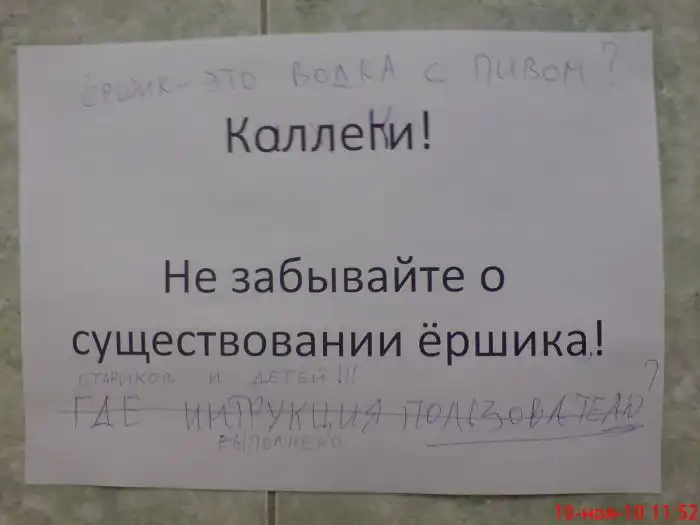 ЁРШИК - ЭТО ВОДКА С ПИВОМ?
КаллеКи!
Не забывайте о
существовании ёршика,!
СТАРИКОВ И ДЕТЕЙ!!!
ГДЕ ИНТРУКЦИЯ ПОЛЬЗОВАТЕЛЮ?
ВЫПОЛНЕНО
10-ноя-10 11:52